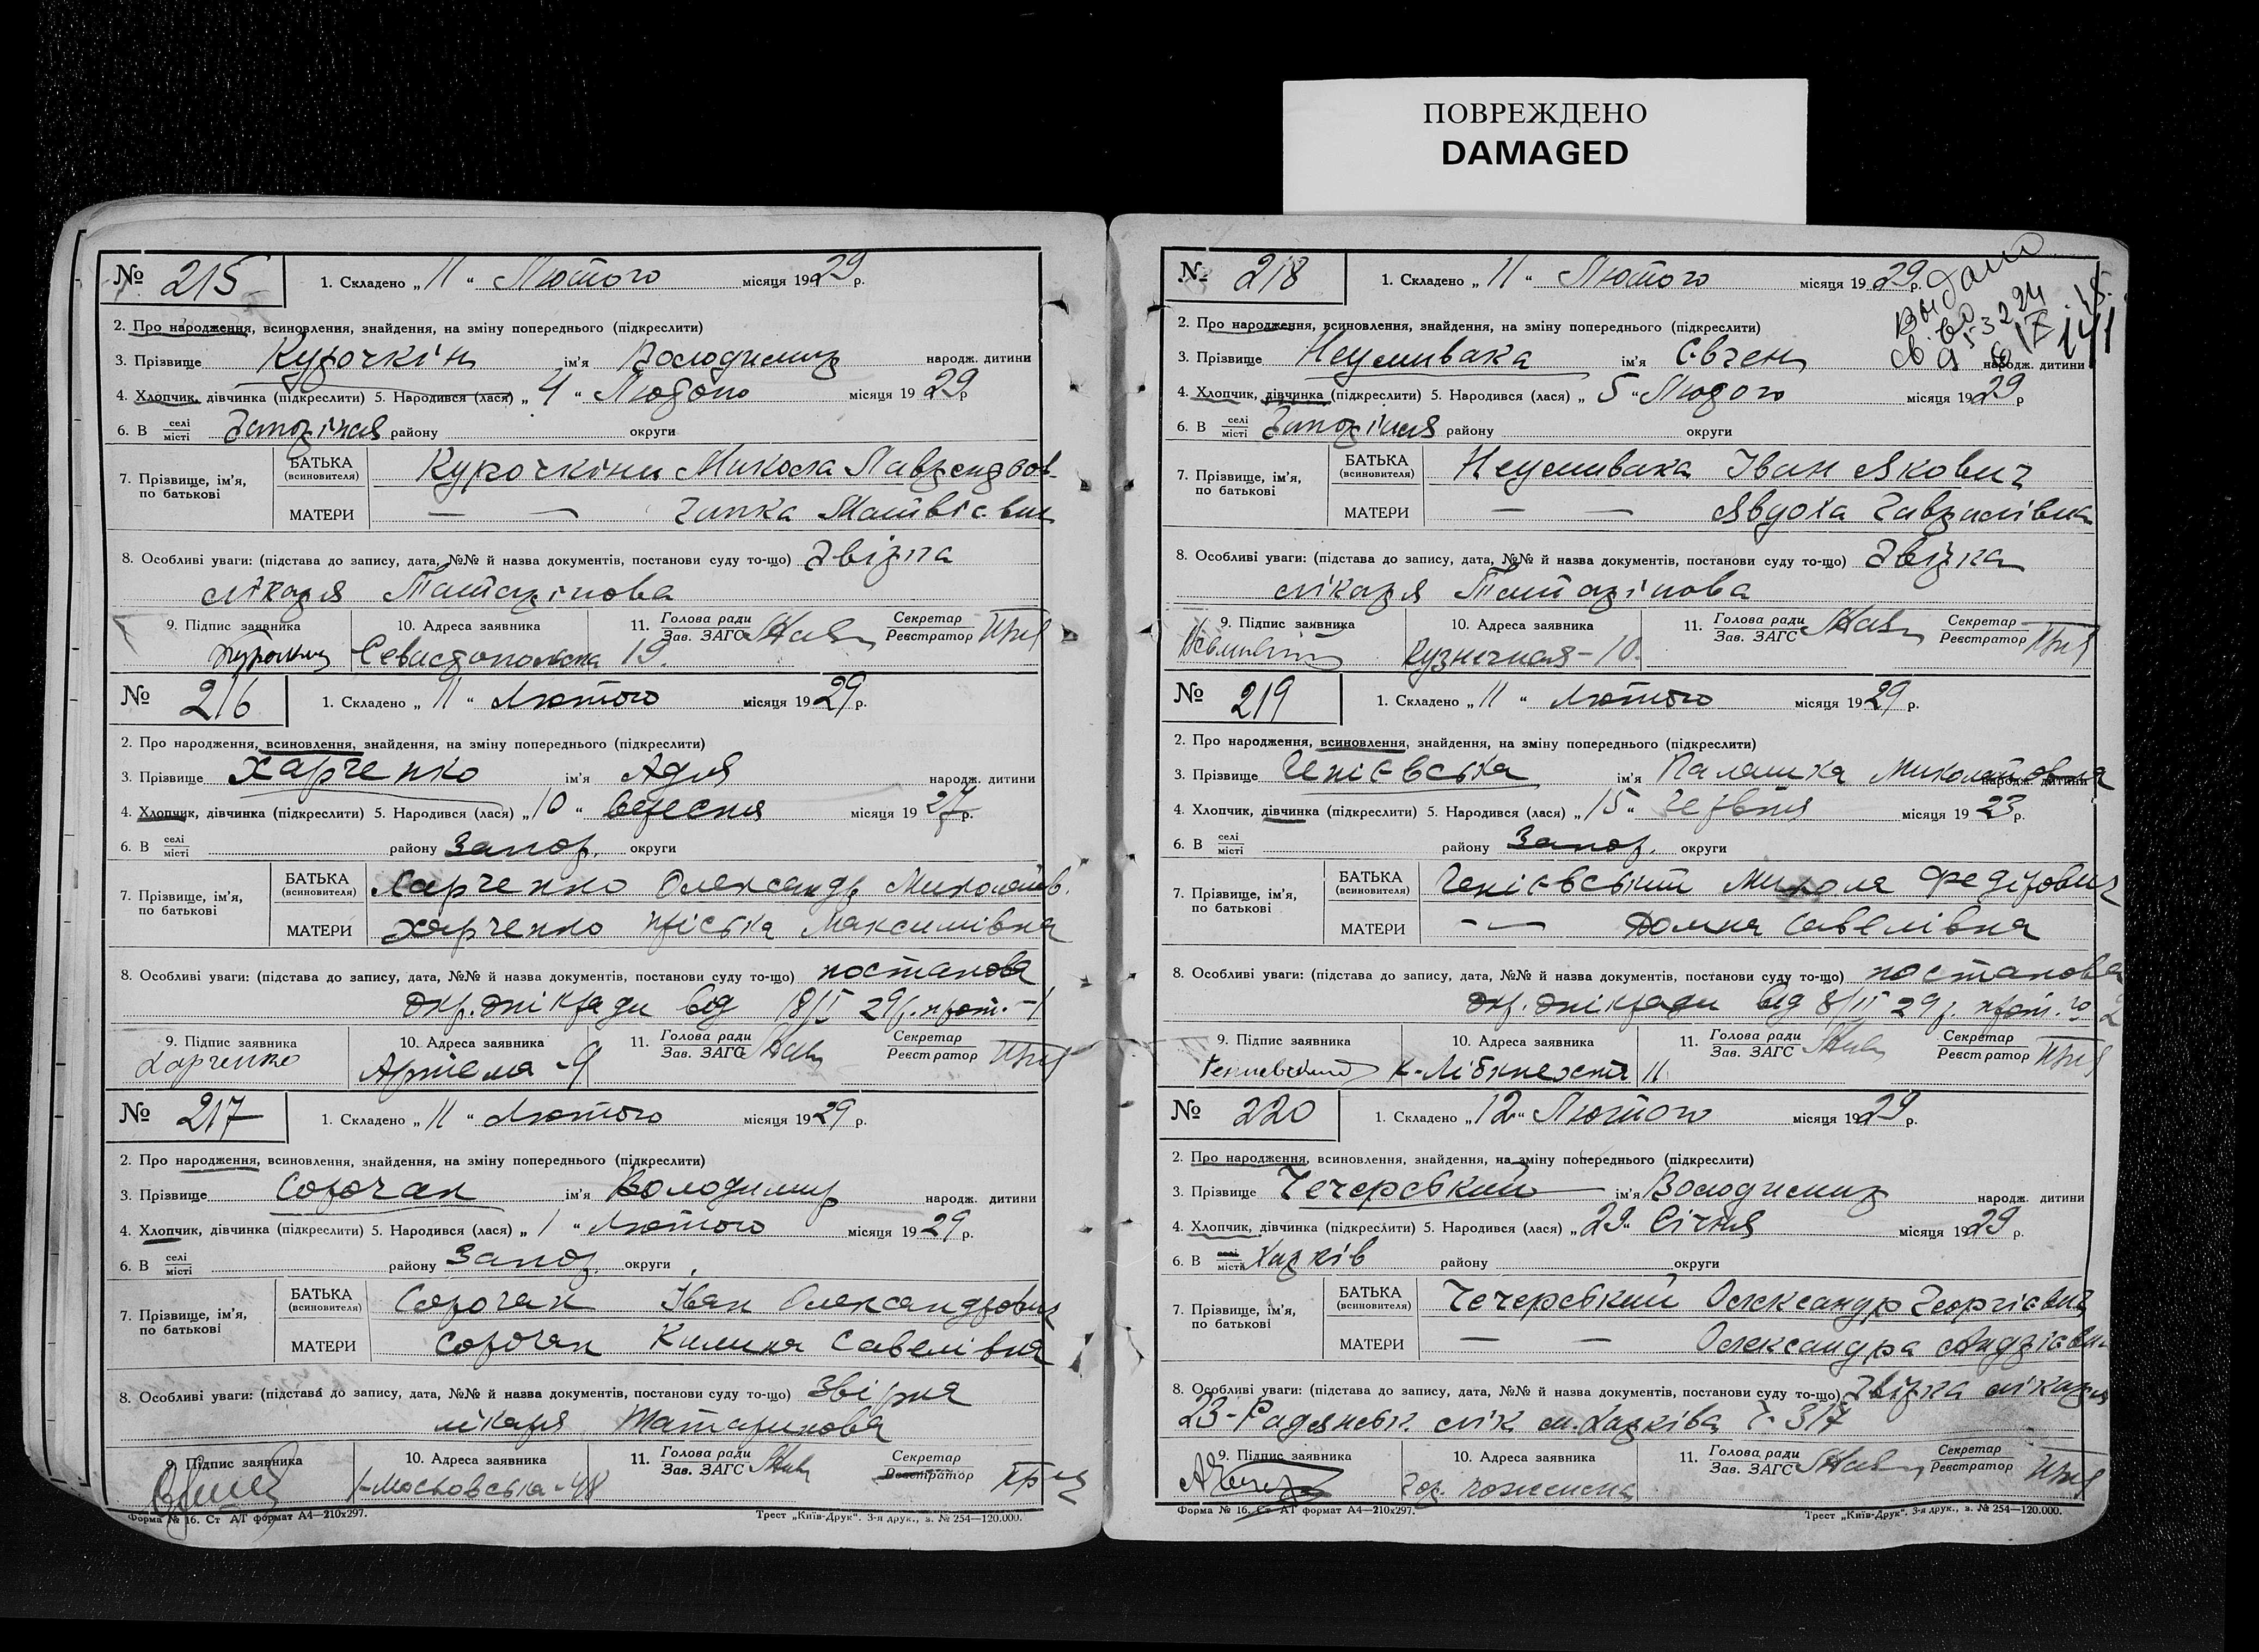 ПОВРЕЖДЕНО
DAMAGED
№ 215
1. Складено „ 11 “ Лютого місяця 1929 р.
2. Про народження, всиновлення, знайдення, на зміну попереднього (підкреслити)
3. Прізвище Курочкін ім'я Володимир народж. дитини
4. Хлопчик, дівчинка (підкреслити) 5. Народився (лася) „ 4 “ Лютого місяця 1929 р
6. В селі місті Запоріжжя району округи
7. Прізвище, ім'я, по батькові
БАТЬКА (всиновителя) Курочкіни Микола Лаврентов-
МАТЕРИ — — Гапка Матвієвна
8. Особливі уваги: (підстава до запису, дата, №№ й назва документів, постанови суду то-що) Звірка
лікаря Татарінова
9. Підпис заявника
10. Адреса заявника Севастопольска 19.
11. Голова ради Зав. ЗАГС
Секретар Реєстратор
№ 216
1. Складено „ 11 “ Лютого місяця 1929 р.
2. Про народження, всиновлення, знайдення, на зміну попереднього (підкреслити)
3. Прізвище Харченко ім'я Адля народж. дитини
4. Хлопчик, дівчинка (підкреслити) 5. Народився (лася) „ 10 “ вересня місяця 1927 р.
6. В селі місті району Запор. округи
7. Прізвище, ім'я, по батькові
БАТЬКА (всиновителя) Харченко Олександр Миколаїв.
МАТЕРИ Харченко Пріська Максимівна
8. Особливі уваги: (підстава до запису, дата, №№ й назва документів, постанови суду то-що) постанова
Окр. опікради від 18/I 29 р. прот. - 1
9. Підпис заявника Харченко
10. Адреса заявника Артема - 9
11. Голова ради Зав. ЗАГС
Секретар Реєстратор
№ 217
1. Складено „ 11 “ Лютого місяця 1929 р.
2. Про народження, всиновлення, знайдення, на зміну попереднього (підкреслити)
3. Прізвище Сорочан ім'я Володимир народж. дитини
4. Хлопчик, дівчинка (підкреслити) 5. Народився (лася) „ 1 “ Лютого місяця 1929 р.
6. В селі місті району Запор. округи
7. Прізвище, ім'я, по батькові
БАТЬКА (всиновителя) Сорочан Іван Олександрович
МАТЕРИ Сорочан Килина Савелівна
8. Особливі уваги: (підстава до запису, дата, №№ й назва документів, постанови суду то-що) Звірка
лікаря Татарінова
9. Підпис заявника
10. Адреса заявника 1-Московська - 48
11. Голова ради Зав. ЗАГС
Секретар Реєстратор
Форма № 16. Ст АТ формат А4—210х297.
Трест „Київ-Друк“. 3-я друк., з. № 254—120.000.
№ 218
1. Складено „ 11 “ Лютого місяця 1929 р.
Выдано
2. Про народження, всиновлення, знайдення, на зміну попереднього (підкреслити)
3. Прізвище Неумивака ім'я Євген народж. дитини
4. Хлопчик, дівчинка (підкреслити) 5. Народився (лася) „ 5 “ Лютого місяця 1929 р
6. В селі місті Запоріжжя району округи
7. Прізвище, ім'я, по батькові
БАТЬКА (всиновителя) Неумивака Іван Якович
МАТЕРИ — — Явдоха Гаврилівна
8. Особливі уваги: (підстава до запису, дата, №№ й назва документів, постанови суду то-що) Звірка
лікаря Татарінова
9. Підпис заявника
10. Адреса заявника Кузнечная - 10.
11. Голова ради Зав. ЗАГС
Секретар Реєстратор
№ 219
1. Складено „ 11 “ Лютого місяця 1929 р.
2. Про народження, всиновлення, знайдення, на зміну попереднього (підкреслити)
3. Прізвище Генієвська ім'я Палашка Миколаївна народж. дитини
4. Хлопчик, дівчинка (підкреслити) 5. Народився (лася) „ 15 “ червня місяця 1923 р.
6. В селі місті району Запор. округи
7. Прізвище, ім'я, по батькові
БАТЬКА (всиновителя) Генієвський Микола Федірович
МАТЕРИ — — Домна Савелівна
8. Особливі уваги: (підстава до запису, дата, №№ й назва документів, постанови суду то-що) постанова
Окр. опікради від 8/II 29 р. прот. № 2
9. Підпис заявника
10. Адреса заявника К-Лібкнехта 11
11. Голова ради Зав. ЗАГС
Секретар Реєстратор
№ 220
1. Складено „ 12 “ Лютого місяця 1929 р.
2. Про народження, всиновлення, знайдення, на зміну попереднього (підкреслити)
3. Прізвище Чечерський ім'я Володимир народж. дитини
4. Хлопчик, дівчинка (підкреслити) 5. Народився (лася) „ 29 “ Січня місяця 1929 р.
6. В селі місті Харків району округи
7. Прізвище, ім'я, по батькові
БАТЬКА (всиновителя) Чечерський Олександр Георгієвич
МАТЕРИ — — Олександра Андрієвн-
8. Особливі уваги: (підстава до запису, дата, №№ й назва документів, постанови суду то-що) Звірка лікаря
23-Радянськ. лік. м. Харківа Ч. 317
9. Підпис заявника
10. Адреса заявника
11. Голова ради Зав. ЗАГС
Секретар Реєстратор
Форма № 16. Ст АТ формат А4—210х297.
Трест „Київ-Друк“. 3-я друк., з. № 254—120.000.